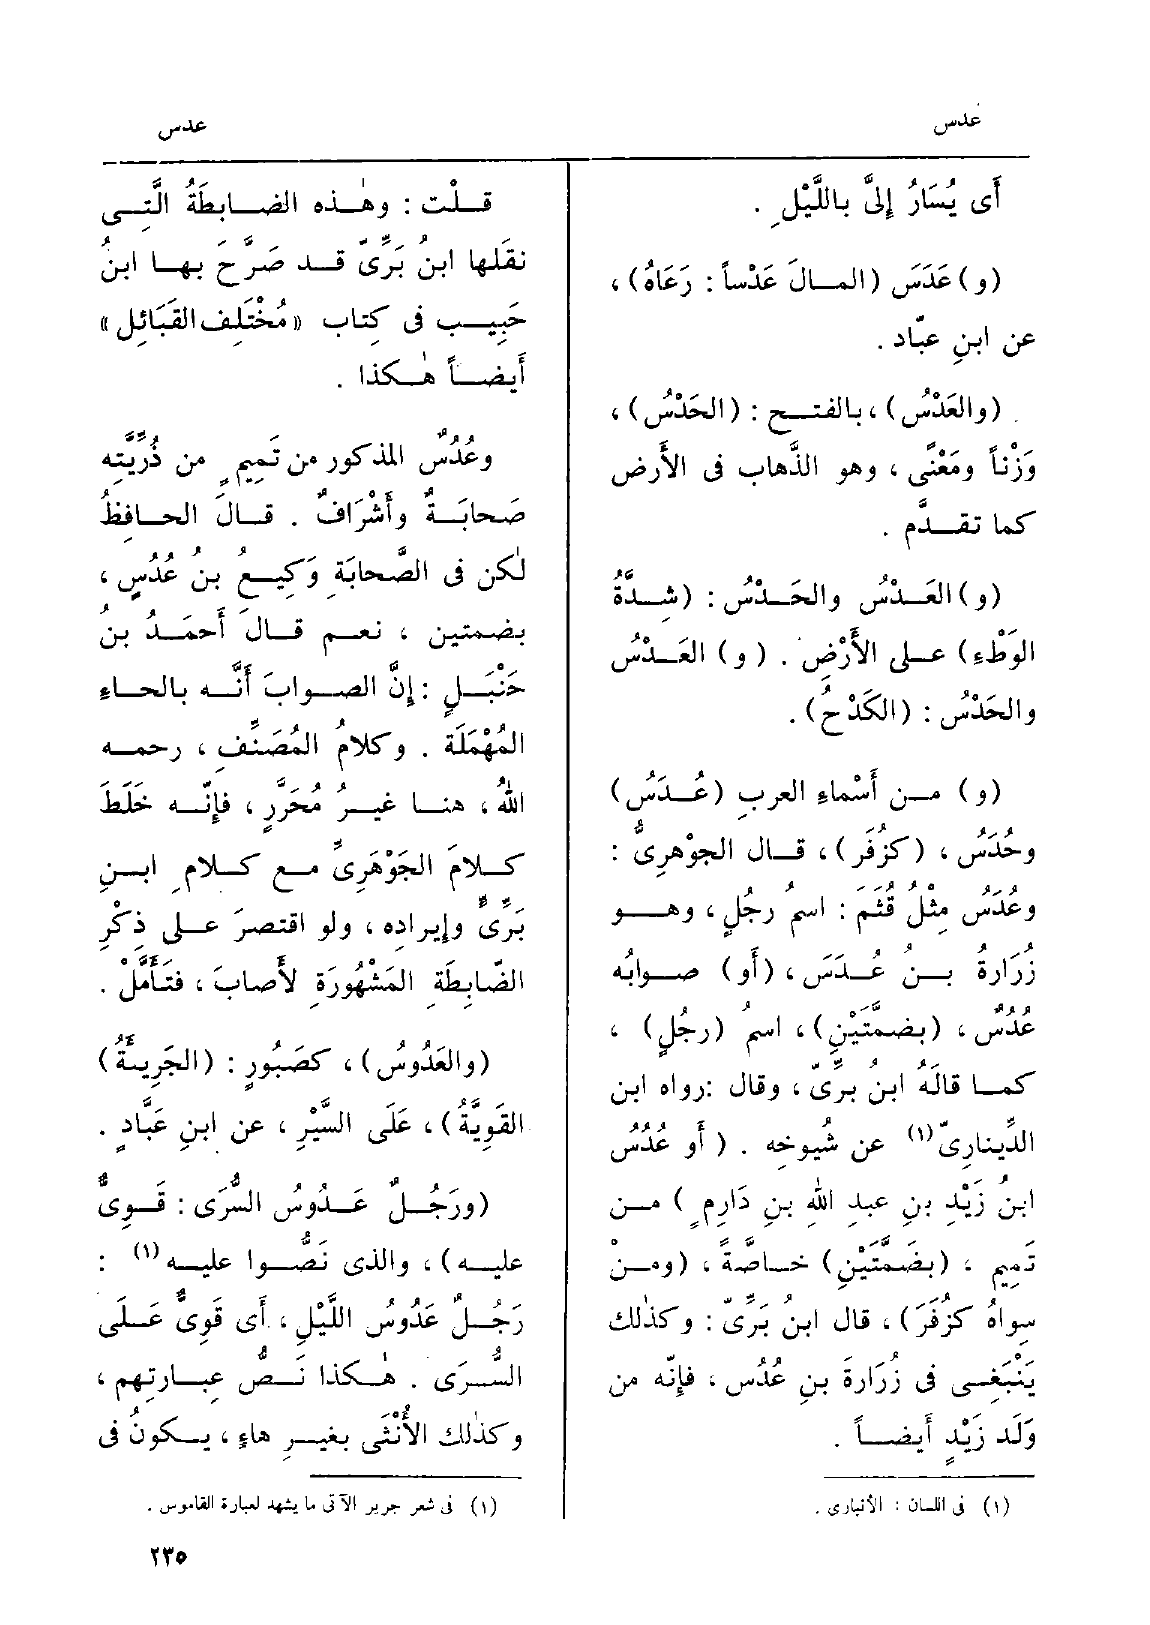 عدس
عدس
أَى يُسَارُ إِلىَّ بِاللَّيْلِ .
(و) عَدَسَ (المـالَ عَدْساً : رَعَاهُ) ،
عن ابنِ عبّاد .
(والعَدْسُ) ، بالفتـح : (الحَدْسُ) ،
وَزْناً ومَعْنًى ، وهو الذَّهاب فى الأَرض
كما تقـدَّم .
(و) العَـدْسُ والحَـدْسُ : (شِـدَّةُ
الوَطْءِ) عـلى الأَرْضِ . (و) العَـدْسُ
والحَدْسُ : (الكَدْحُ) .
(و) مـن أَسْماءِ العربِ (عُـدَسُ)
وحُدَسُ ، (كزُفَر) ، قـال الجوْهرِىُّ :
وعُدَسُ مِثْلُ قُثَمَ : اسمُ رجُلٍ ، وهـو
زُرَارةُ بـنُ عُـدَسَ ، (أَو) صـوابُه
عُدُسٌ ، (بضمَّتَيْنِ) ، اسمُ (رجُلٍ) ،
كمـا قالَهُ ابنُ برِّىّ ، وقال :رواه ابن
الدِّينارِىّ (١) عن شُيوخه . (أَو عُدُسُ
ابنُ زَيْدِ بنِ عبدِ اللهِ بنِ دَارِمٍ) مـن
تَمِيم ، (بضَمَّتَيْنِ) خـاصَّةً ، (ومـنْ
سِواهُ كزُفَرَ) ، قال ابنُ بَرِّىّ : وكذٰلك
يَنْبَغِـى فى زُرَارةَ بنِ عُدُس ، فإِنّه من
وَلَد زَيْدٍ أَيضـاً .
(١) فى اللسان : الأنبارى .
قلْت : وهٰـذه الضـابِطَةُ الَّتِـى
نقَلها ابنُ بَرِّىّ قـد صَرَّحَ بهـا ابنُ
حَبِيـب فى كِتاب «مُخْتَلِف القَبَائِل»
أَيضـاً هٰـكذا .
وعُدُسٌ المذكور من تَمِيمٍ من ذُرِّيَّتِه
صَحابَـةٌ وأَشْرَافٌ . قـالَ الحـافِظُ
لٰكن فى الصَّحابَةِ وَكِيـع بنُ عُدُسٍ ،
بضمتين ، نعـم قـالَ أَحمَـدُ بن
حَنْبَـلٍ :إِنَّ الصـوابَ أَنَّـه بالحـاءِ
المُهْمَلَة . وكلامُ المُصَنِّف ، رحمـه
اللهُ ، هنـا غيـرُ مُحَرَّرٍ ، فإِنّـه خَلَطَ
كـلامَ الجَوْهَرِىِّ مـع كـلامِ ابـنِ
بَرِّىٍّ وإِيراده ، ولو اقتصرَ عـلى ذِكْرِ
الضّابِطَةِ المَشْهُورَةِ لأَصابَ ، فتَأَمَّلْ .
(والعَدُوسُ) ، كصَبُورٍ : (الجَرِيئَةُ)
القَوِيَّةُ) ، عَلَى السَّيْرِ ، عن ابنِ عَبَّادٍ .
(ورَجُـلٌ عَـدُوسُ السُّرَى : قَـوِىٌّ
عليـه) ، والذى نَصُّـوا عليـه (١) :
رَجُـلٌ عَدُوسُ اللَّيْلِ ، أَى قَوِىٌّ عَـلَى
السُّـرَى . هٰـكذا نَـصُّ عِبـارتِهم ،
وكذٰلك الأُنْثَى بغيـرِ هاءٍ ، يـكونُ فى
(١) فى شعر جرير الآتى ما يشهد لعبارة القاموس .
٢٣٥